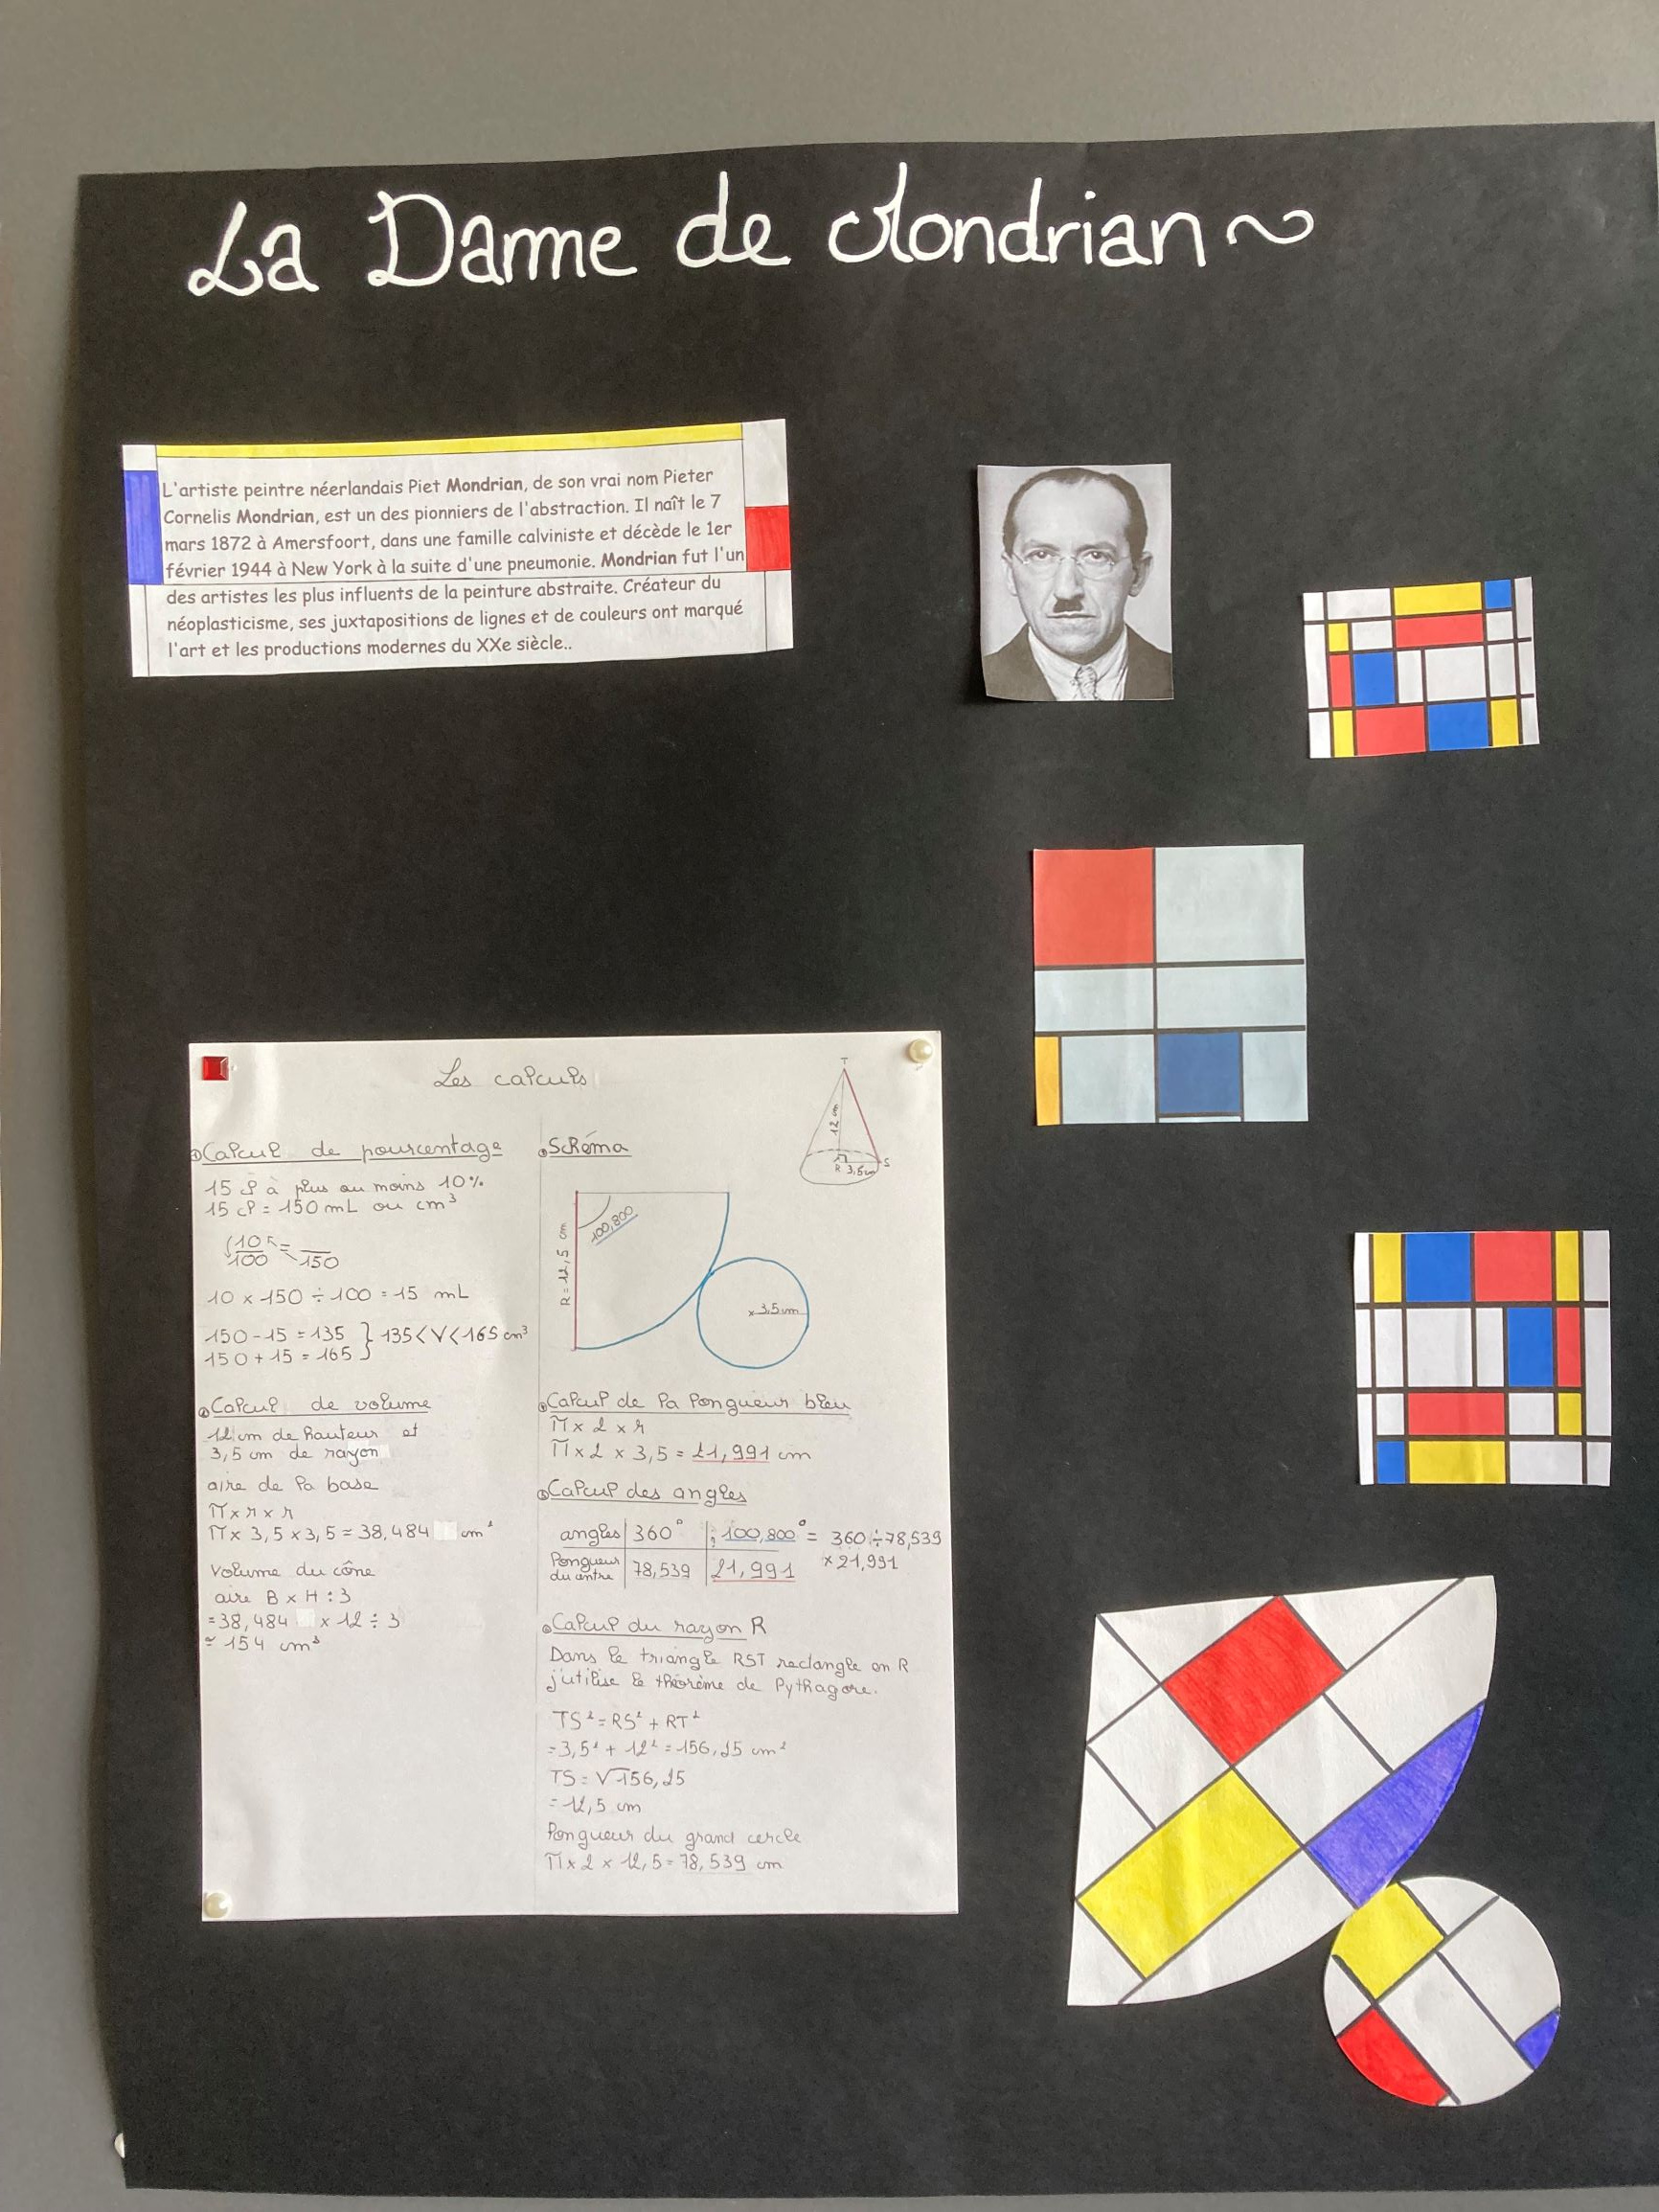 La Dame de Mondrian ~
L'artiste peintre néerlandais Piet Mondrian, de son vrai nom Pieter
Cornelis Mondrian, est un des pionniers de l'abstraction. Il naît le 7
mars 1872 à Amersfoort, dans une famille calviniste et décède le 1er
février 1944 à New York à la suite d'une pneumonie. Mondrian fut l'un
des artistes les plus influents de la peinture abstraite. Créateur du
néoplasticisme, ses juxtapositions de lignes et de couleurs ont marqué
l'art et les productions modernes du XXe siècle..
Les calculs
Calcul de pourcentage
15 cl à plus ou moins 10%
15 cl = 150 mL ou cm³
10/100 = /150
10 × 150 ÷ 100 = 15 mL
150 - 15 = 135 } 135 < V < 165 cm³
150 + 15 = 165
Calcul de volume
12 cm de hauteur et
3,5 cm de rayon
aire de la base
π × r × r
π × 3,5 × 3,5 ≈ 38,484 cm²
Volume du cône
aire B × H : 3
= 38,484 × 12 ÷ 3
≈ 154 cm³
Schéma
T
12 cm
R 3,5 cm S
100,800
R = 12,5 cm
× 3,5 cm
Calcul de la longueur bleu
π × 2 × r
π × 2 × 3,5 = 21,991 cm
Calcul des angles
angles 360° 100,800° = 360 ÷ 78,539
longueur 78,539 21,991 × 21,991
Calcul du rayon R
Dans le triangle RST rectangle en R
j'utilise le théorème de Pythagore.
TS² = RS² + RT²
= 3,5² + 12² = 156,25 cm²
TS = √156,25
= 12,5 cm
longueur du grand cercle
π × 2 × 12,5 = 78,539 cm